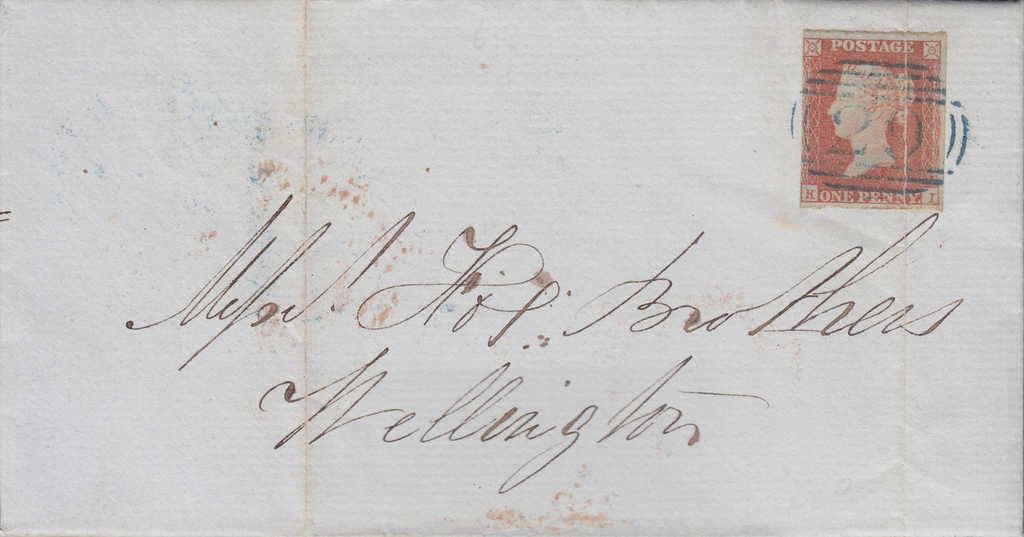 POSTAGE
29
K ONE PENNY I
Messrs Fox Brothers
Wellington